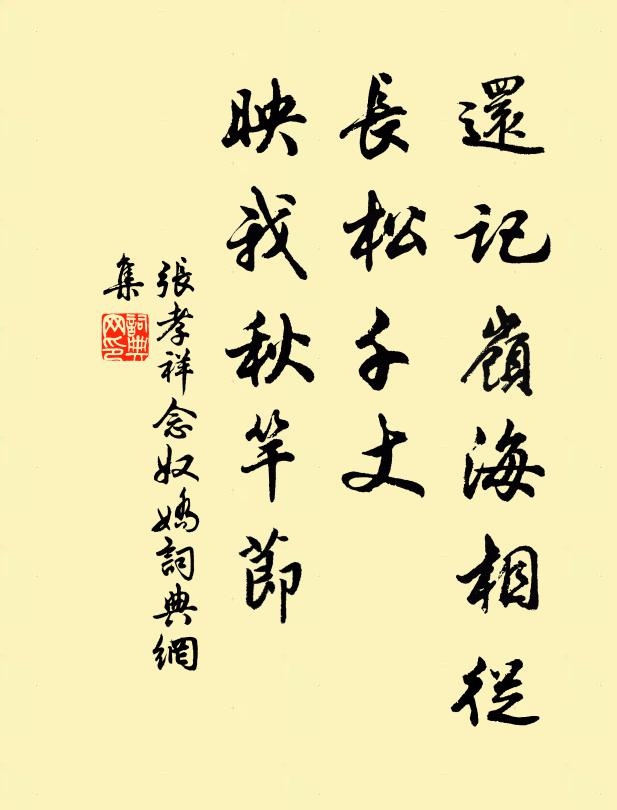 還記嶺海相從
長松千丈
映我秋竿節
張孝祥念奴嬌詞典網
集
詞典網印